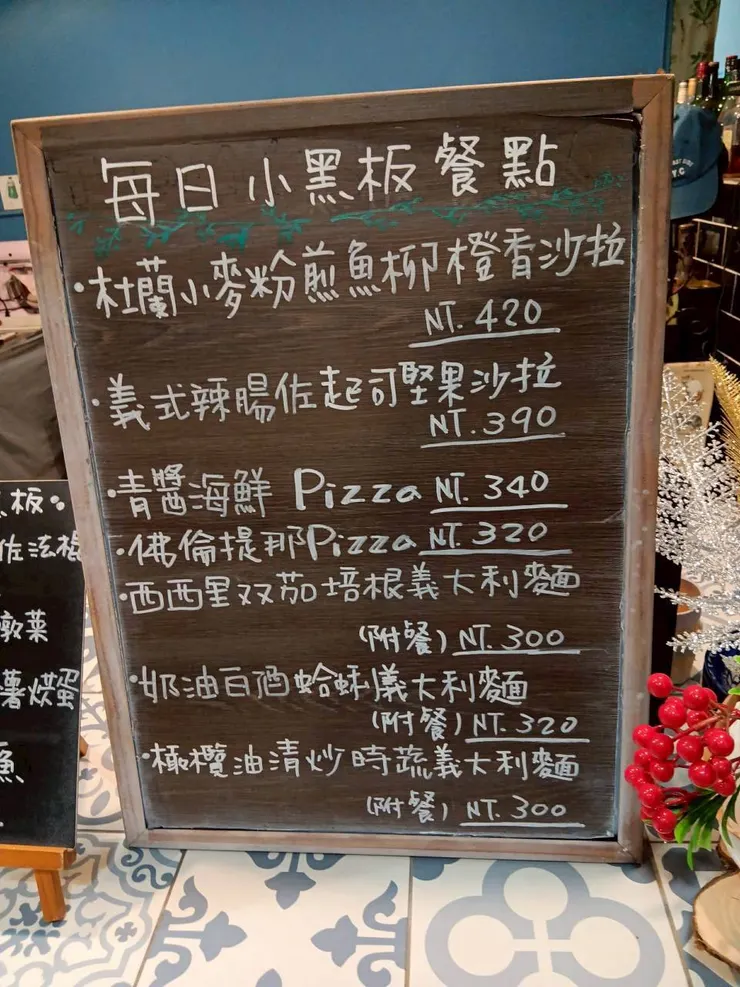 每日小黑板餐點
·杜蘭小麥粉煎魚柳橙香沙拉
NT. 420
·義式辣腸佐起司堅果沙拉
NT. 390
·青醬海鮮 Pizza NT. 340
·佛倫提那Pizza NT. 320
·西西里双茄培根義大利麵
(附餐) NT. 300
·奶油白酒蛤蜊義大利麵
(附餐) NT. 320
·橄欖油清炒時蔬義大利麵
(附餐) NT. 300
板。
佐法棍
燉菜
薯烘蛋
魚